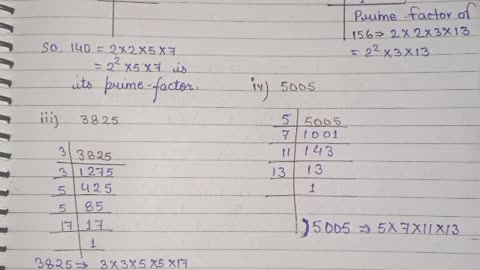 1
Prime factor of
156 ⇒ 2×2×3×13
= 2² ×3×13
SO, 140 = 2×2×5×7
= 2² ×5×7 is
its prime-factor.
iii) 3825
3 | 3825
3 | 1275
5 | 425
5 | 85
17 | 17
1
3825 ⇒ 3×3×5×5×17
iv) 5005
5 | 5005
7 | 1001
11 | 143
13 | 13
1
5005 ⇒ 5×7×11×13